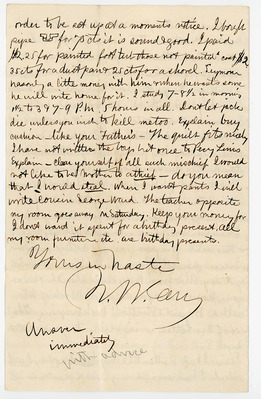 order to be set up at a moments notice. I bought
for 75 cts it is sound & good. I paid
$1.25 for painted foot tub those not painted cost $2
35 cts for a dust pan & 25 cts for a shovel. Seymour
has only a little money with him when he wants some
he will write home for it. I study 7-8½ in morning
1½ to 3 & 7-9 P.M. 5 hours in all. Don't let Jack
die unless you wish to kill me too. Explain buy
cushion - like your Father's - The quilt fits nicely
I have not written the boys but once to Percy Lewis
Explain - clear yourself of all such mischief I would
not like to be brother to a thief - do you mean
that I would steal. When I want pants I will
write Cousin George Ward. The teacher opposite
my room goes away on Saturday. Keep your money for
I don't want it spent for a birthday present. All
my room furniture etc are birthday presents.
Yours in haste
Answer
immediately
with advice